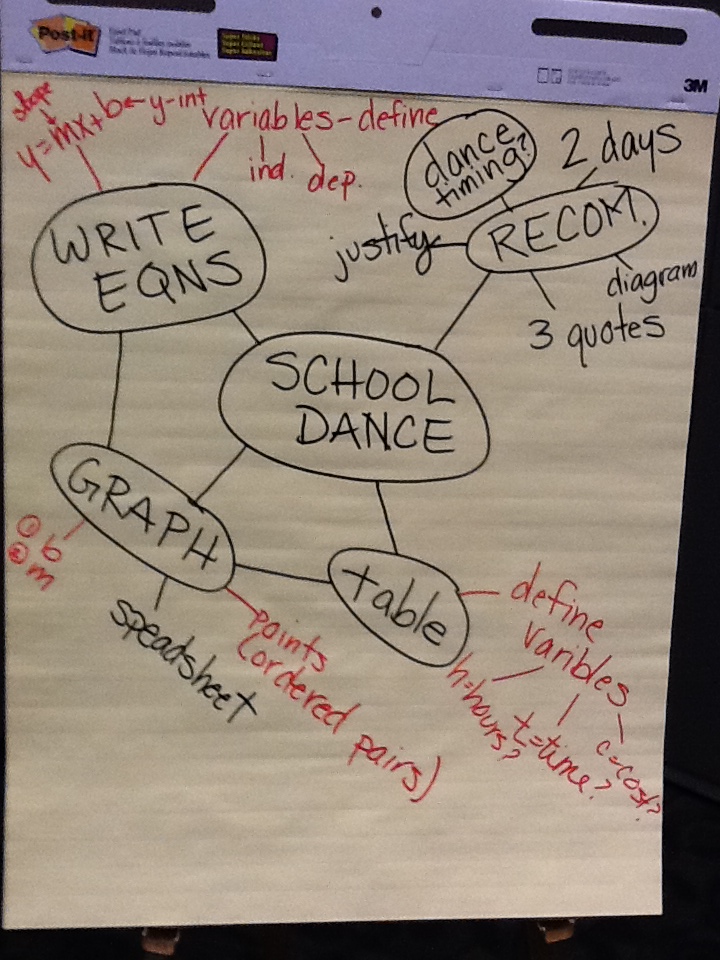 Post-it
Super Sticky
3M
slope
y=mx+b←y-int
variables-define
ind. dep.
dance
timing?
2 days
RECOM.
justify
diagram
3 quotes
WRITE
EQNS
SCHOOL
DANCE
GRAPH
① b
② m
speadsheet
points
(ordered pairs)
table
define
varibles
h=hours?
t=time?
c=cost?